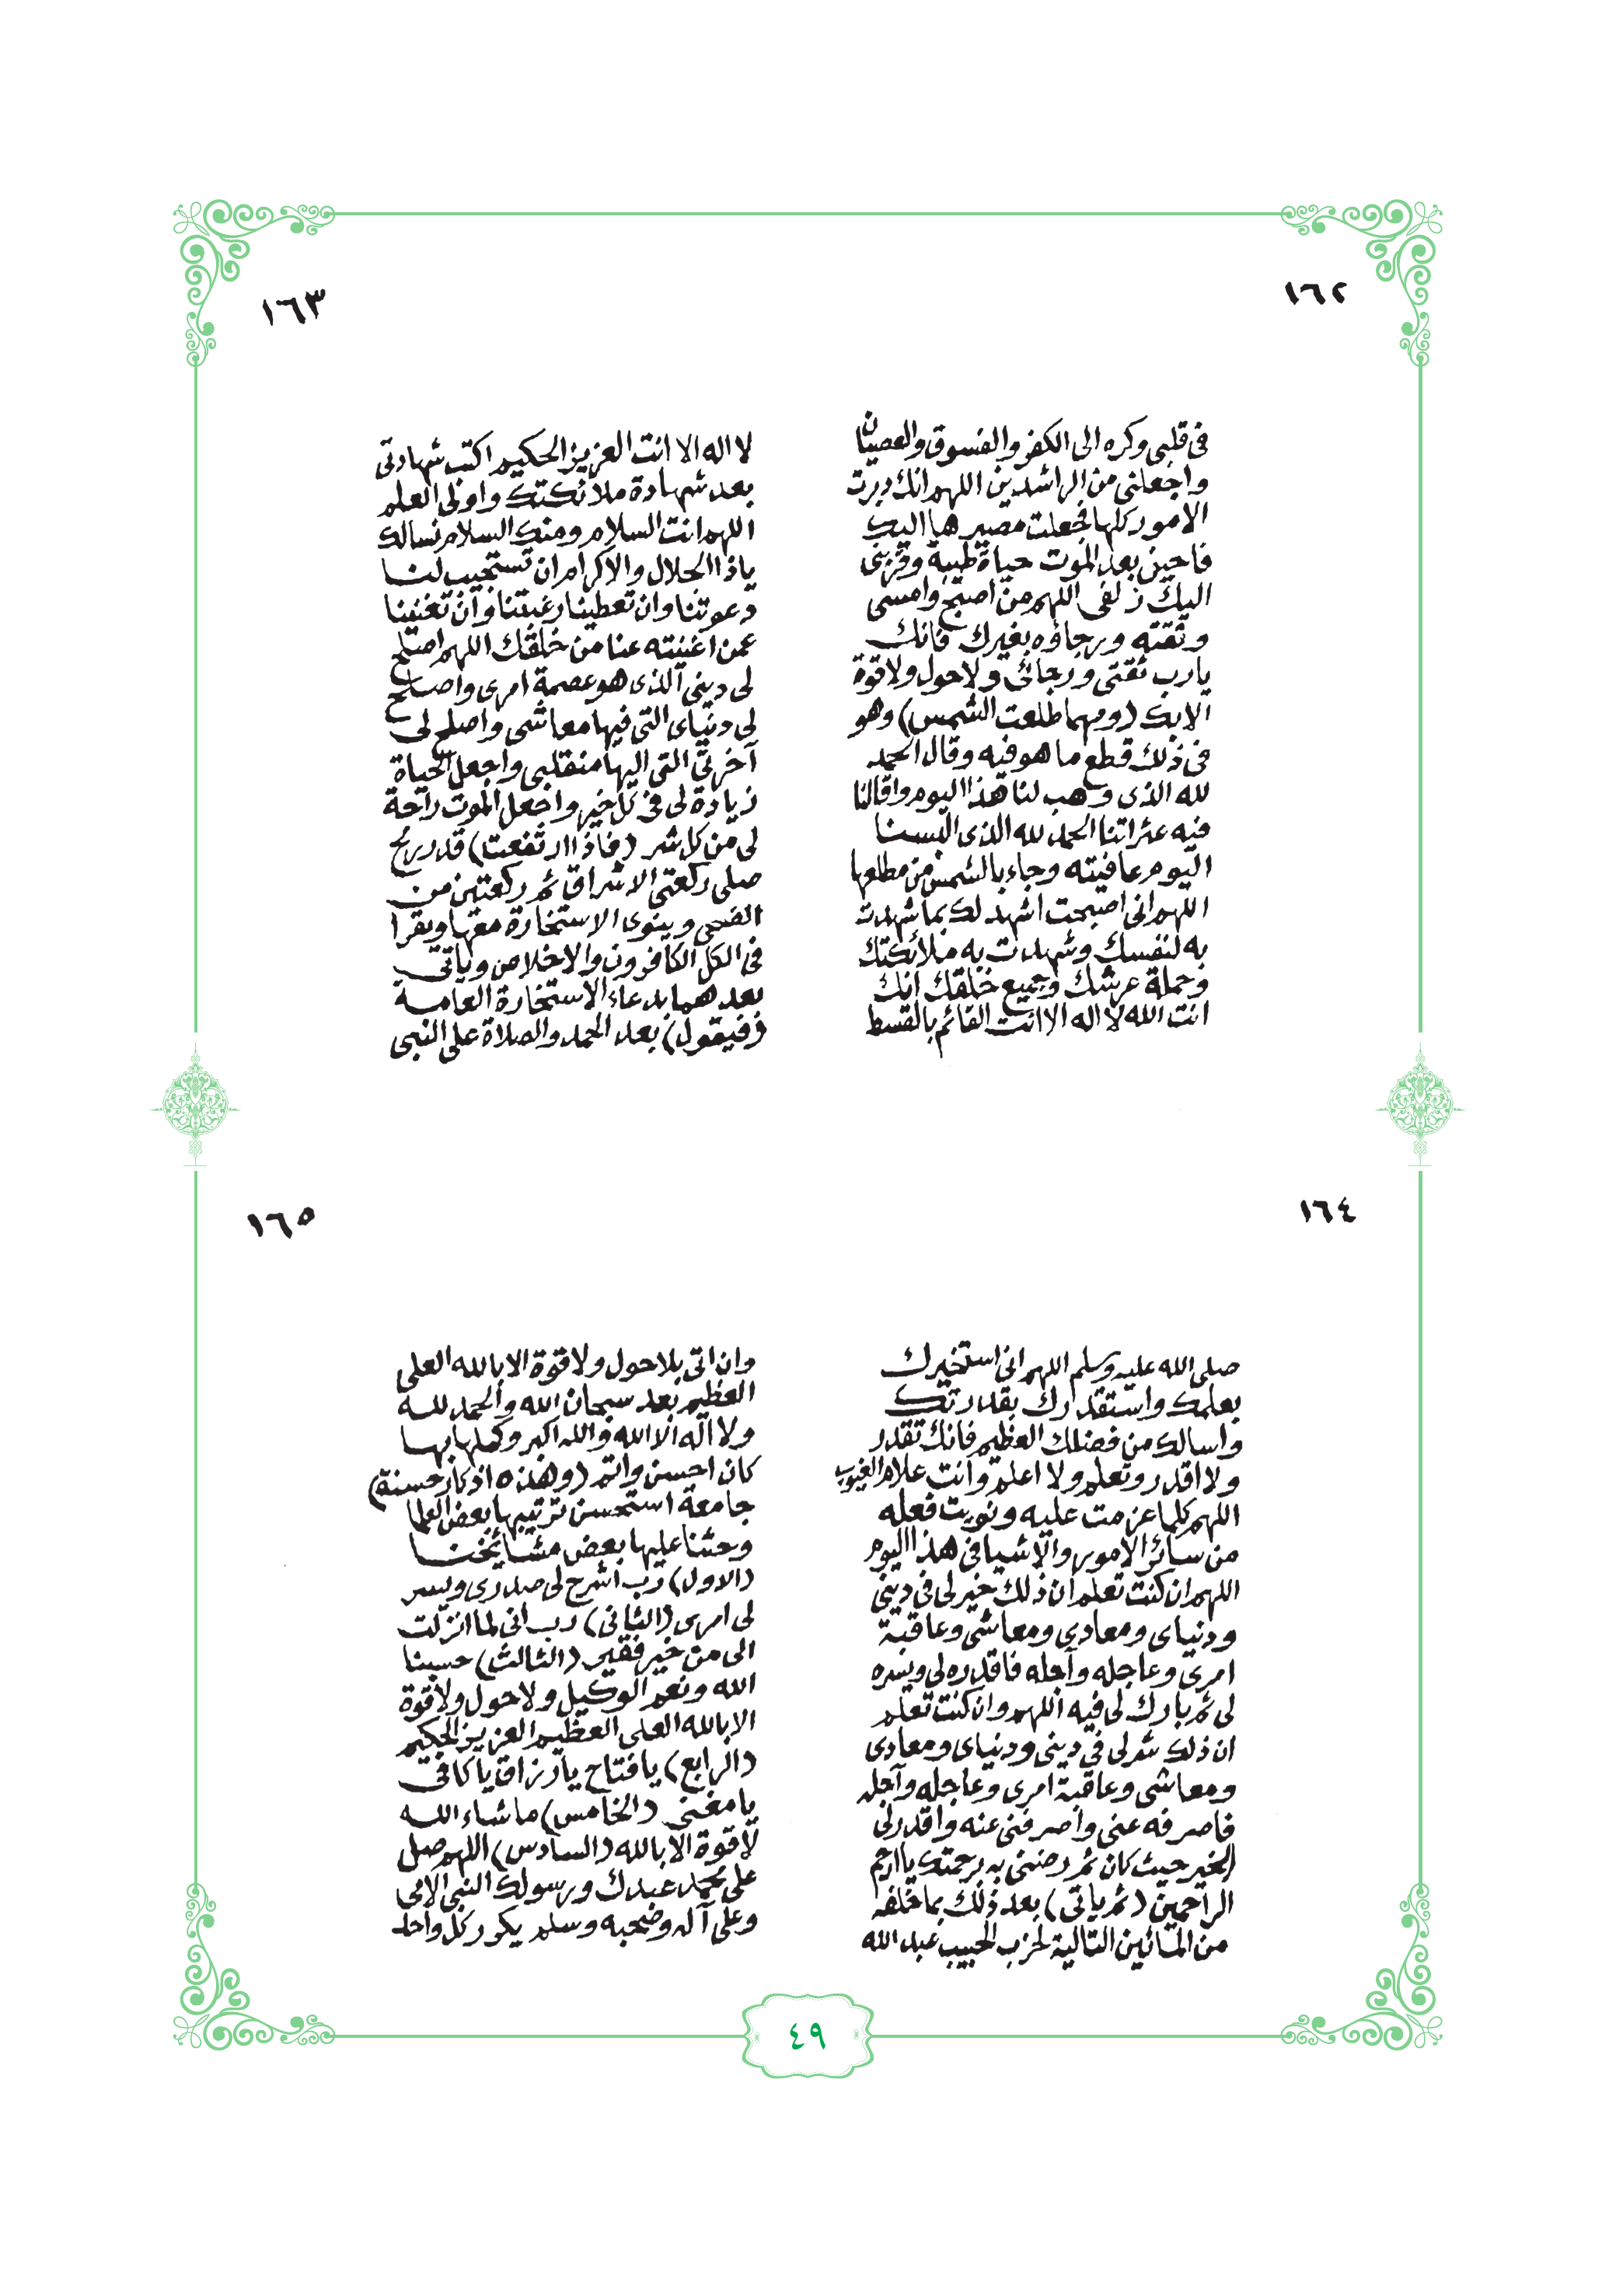 ١٦٢
فى قلبى وكره الى الكفر والفسوق والعصيان
واجعلنى من الراشدين اللهم انك دبرت
الامور كلها فجعلت مصيرها اليك
فاحين بعد الموت حياة طيبة وقربنى
اليك زلفى اللهم من اصبح وامسى
وثقته ورجاؤه بغيرك فانك
يارب ثقتى ورجائى ولاحول ولا قوة
الا بك (ومهما طلعت الشمس) وهو
فى ذلك قطع ما هو فيه وقال الحمد
لله الذى وهب لنا هذا اليوم واقالنا
فيه عثراتنا الحمد لله الذى البسنا
اليوم عافيته وجاء بالشمس من مطلعها
اللهم انى اصبحت اشهد لك بما شهدت
به لنفسك وشهدت به ملائكتك
وحملة عرشك وجميع خلقك انك
انت الله لا اله الا انت القائم بالقسط
١٦٣
لا اله الا انت العزيز الحكيم اكتب شهادتى
بعد شهادة ملائكتك واولى العلم
اللهم انت السلام ومنك السلام نسالك
ياذا الجلال والاكرام ان تستجيب لنا
دعوتنا وان تعطينا رغبتنا وان تغنينا
عمن اغنيته عنا من خلقك اللهم اصلح
لى دينى الذى هو عصمة امرى واصلح
لى دنياى التى فيها معاشى واصلح لى
آخرتى التى اليها منقلبى واجعل الحياة
زيادة لى فى كل خير واجعل الموت راحة
لى من كل شر (فاذا ارتفعت) قدر رمح
صلى ركعتى الاشراق ثم ركعتين من
الضحى وينوى الاستخارة معها ويقرا
فى الكل الكافرون والاخلاص وياتى
بعدهما بدعاء الاستخارة العامة
(فيقول) بعد الحمد والصلاة على النبى
١٦٤
صلى الله عليه وسلم اللهم انى استخيرك
بعلمك واستقدرك بقدرتك
واسالك من فضلك العظيم فانك تقدر
ولا اقدر وتعلم ولا اعلم وانت علام الغيوب
اللهم كلما عزمت عليه ونويت فعله
من سائر الامور والاشيا فى هذا اليوم
اللهم ان كنت تعلم ان ذلك خير لى فى دينى
ودنياى ومعادى ومعاشى وعاقبة
امرى وعاجله وآجله فاقدره لى ويسره
لى ثم بارك لى فيه اللهم وان كنت تعلم
ان ذلك شر لى فى دينى ودنياى ومعادى
ومعاشى وعاقبة امرى وعاجله وآجله
فاصرفه عنى واصرفنى عنه واقدر لى
الخير حيث كان ثم رضنى به برحمتك يا ارحم
الراحمين (ثم ياتى) بعد ذلك بما خلفه
من المائين التالية لحزب الحبيب عبد الله
١٦٥
وان اتى بلاحول ولا قوة الا بالله العلى
العظيم بعد سبحان الله والحمد لله
ولا اله الا الله والله اكبر وكملها بها
كان احسن واتم (وهذه اذكار حسنة)
جامعة استحسن ترتيبها بعض العلما
وحثنا عليها بعض مشائخنا
(الاول) رب اشرح لى صدرى ويسر
لى امرى (الثانى) رب انى لما انزلت
الى من خير فقير (الثالث) حسبنا
الله ونعم الوكيل ولا حول ولا قوة
الا بالله العلى العظيم العزيز الحكيم
(الرابع) يا فتاح يا رزاق يا كافى
يا مغنى (الخامس) ما شاء الله
لا قوة الا بالله (السادس) اللهم صل
على محمد عبدك ورسولك النبى الامى
وعلى آله وصحبه وسلم يكرر كل واحد
٤٩